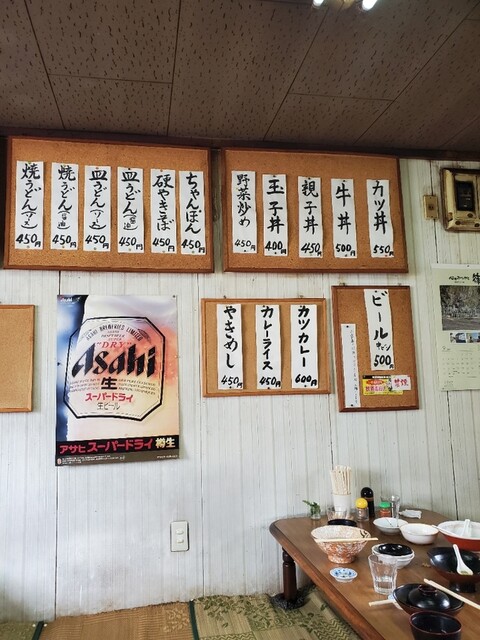 カツ丼 550円
牛丼 500円
親子丼 450円
玉子丼 400円
野菜炒め 450円
ちゃんぽん 450円
硬やきそば 450円
皿うどん 450円
皿うどん 450円
焼うどん 450円
焼うどん 450円
ビール 中ビン 500円
カツカレー 600円
カレーライス 450円
やきめし 450円
ASAHI BREWERIES LIMITED
"DRY"
Asahi
生
スーパードライ
生ビール
アサヒスーパードライ 樽生
禁煙